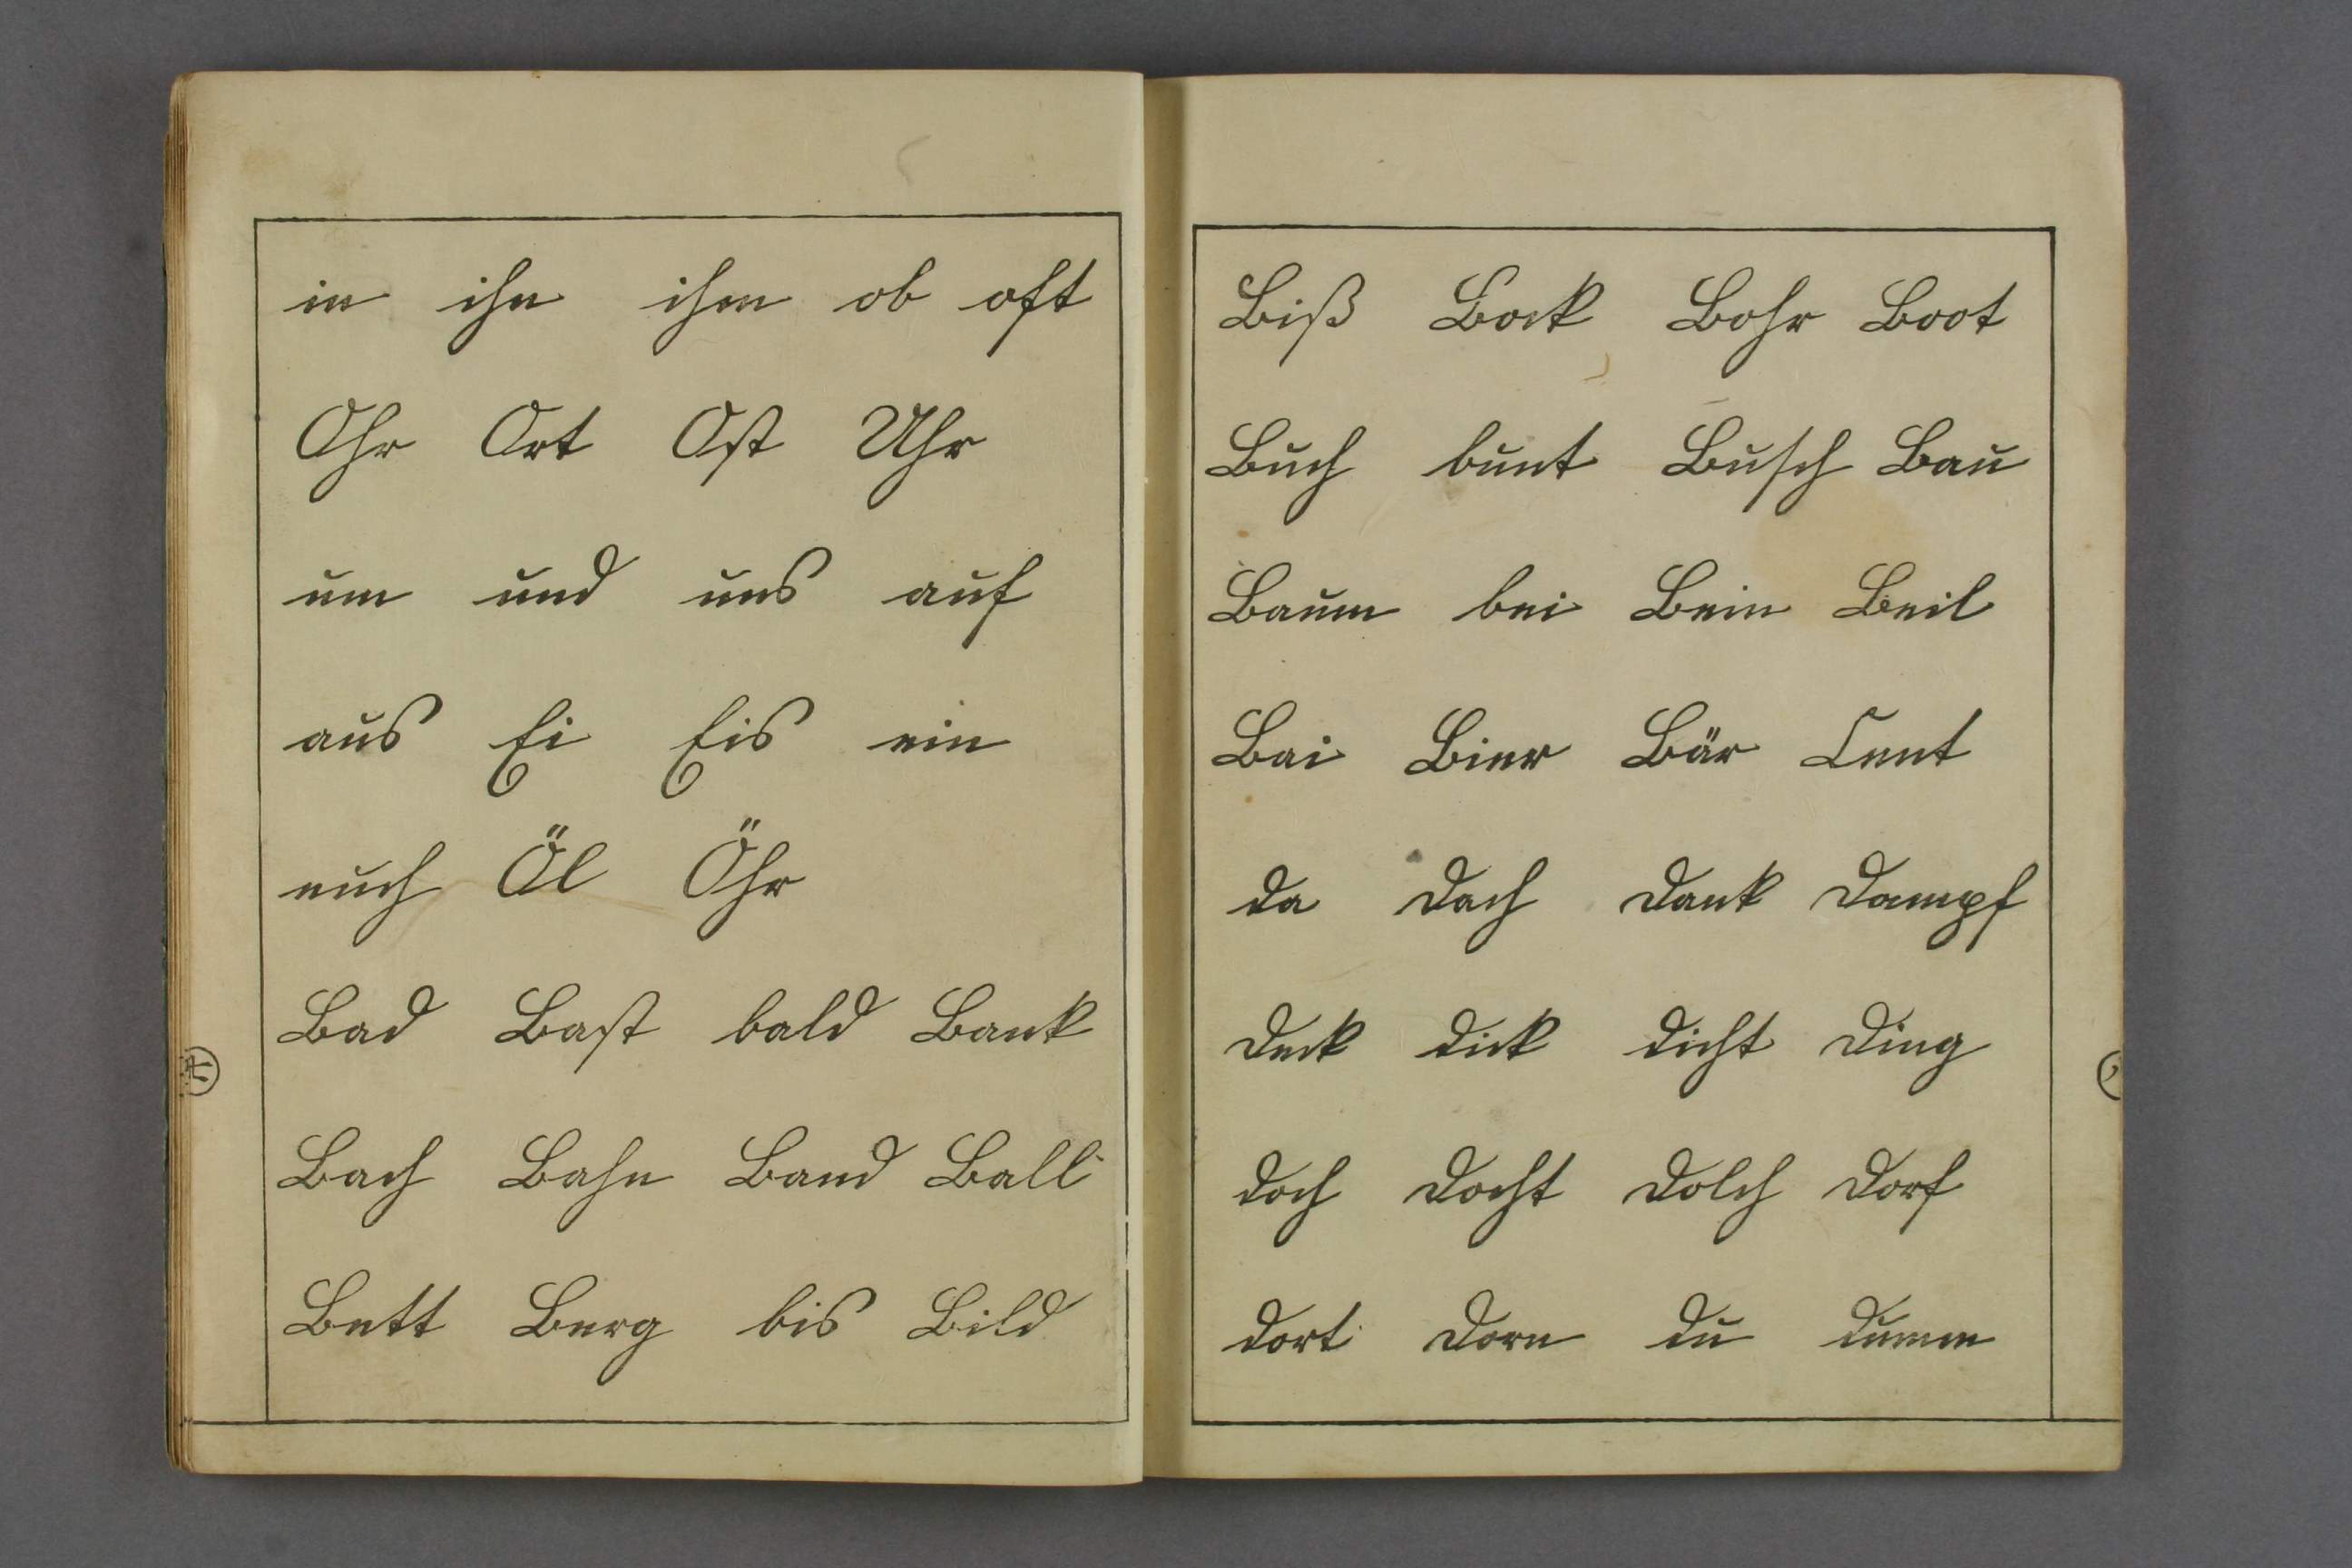 in ihn ihm ob oft
Ohr Ort Ost Uhr
um und uns auf
aus Ei Eis ein
euch Öl Öhr
Bad Bast bald Bank
Bach Bahn Band Ball
Bett Berg bis Bild
Biß Bock Bohr Boot
Buch bunt Busch Bau
Baum bei Bein Beil
Bai Bier Bär Cent
da Dach Dank Dampf
Deck dick dicht Ding
doch Docht Dolch Dorf
dort Dorn du dumm